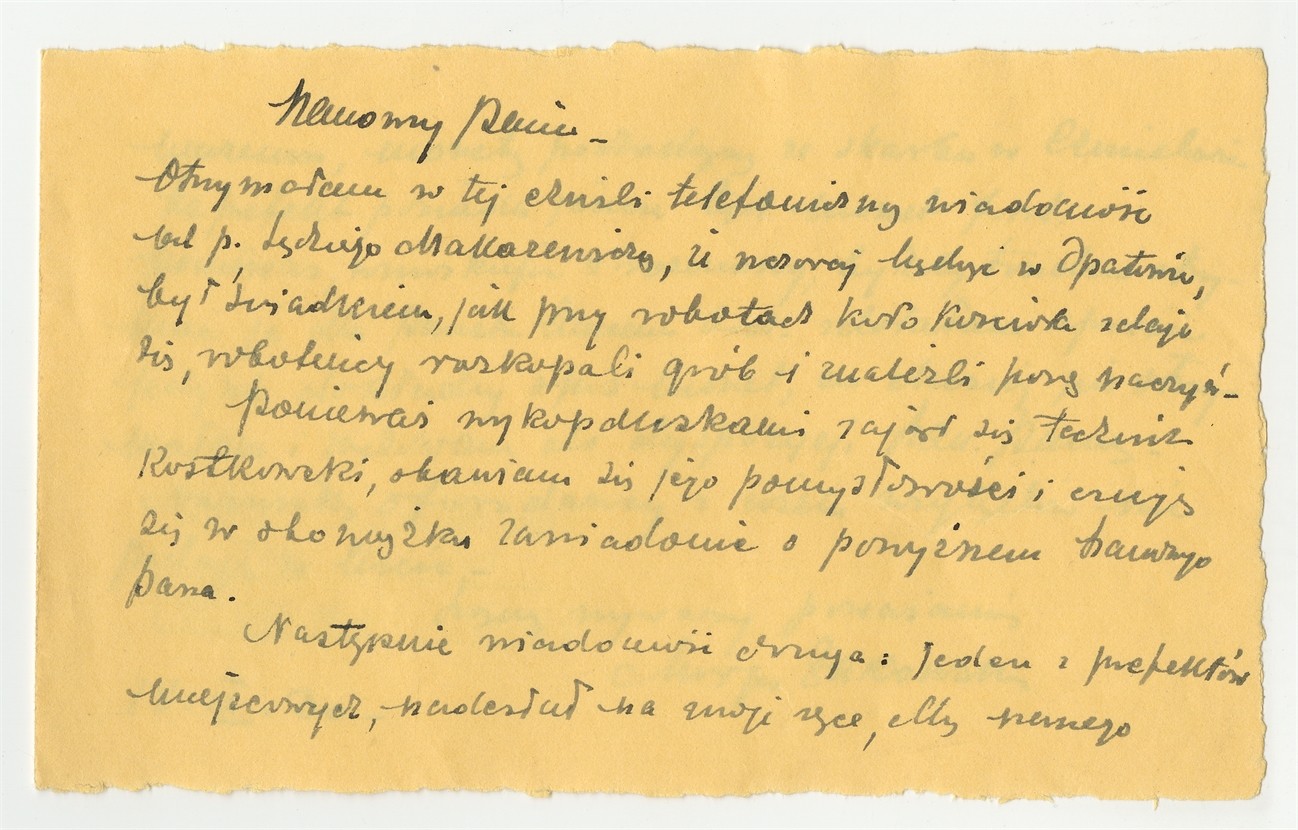 Szanowny Panie –
Otrzymałem w tej chwili telefoniczną wiadomość
od p. Sędziego Makarewicza, iż wczoraj będąc w Opatowie,
był świadkiem, jak przy robotach koło kościoła zdaje
się, robotnicy rozkopali grób i znaleźli parę naczyń –
Ponieważ wykopaliskami zajął się technik
Kostkowski, obawiam się jego pomysłowości i czuję
się w obowiązku zawiadomić o powyższem Szanownego
Pana.
Następnie wiadomość druga: jeden z prefektów
miejscowych, nadesłał na moje ręce, dla